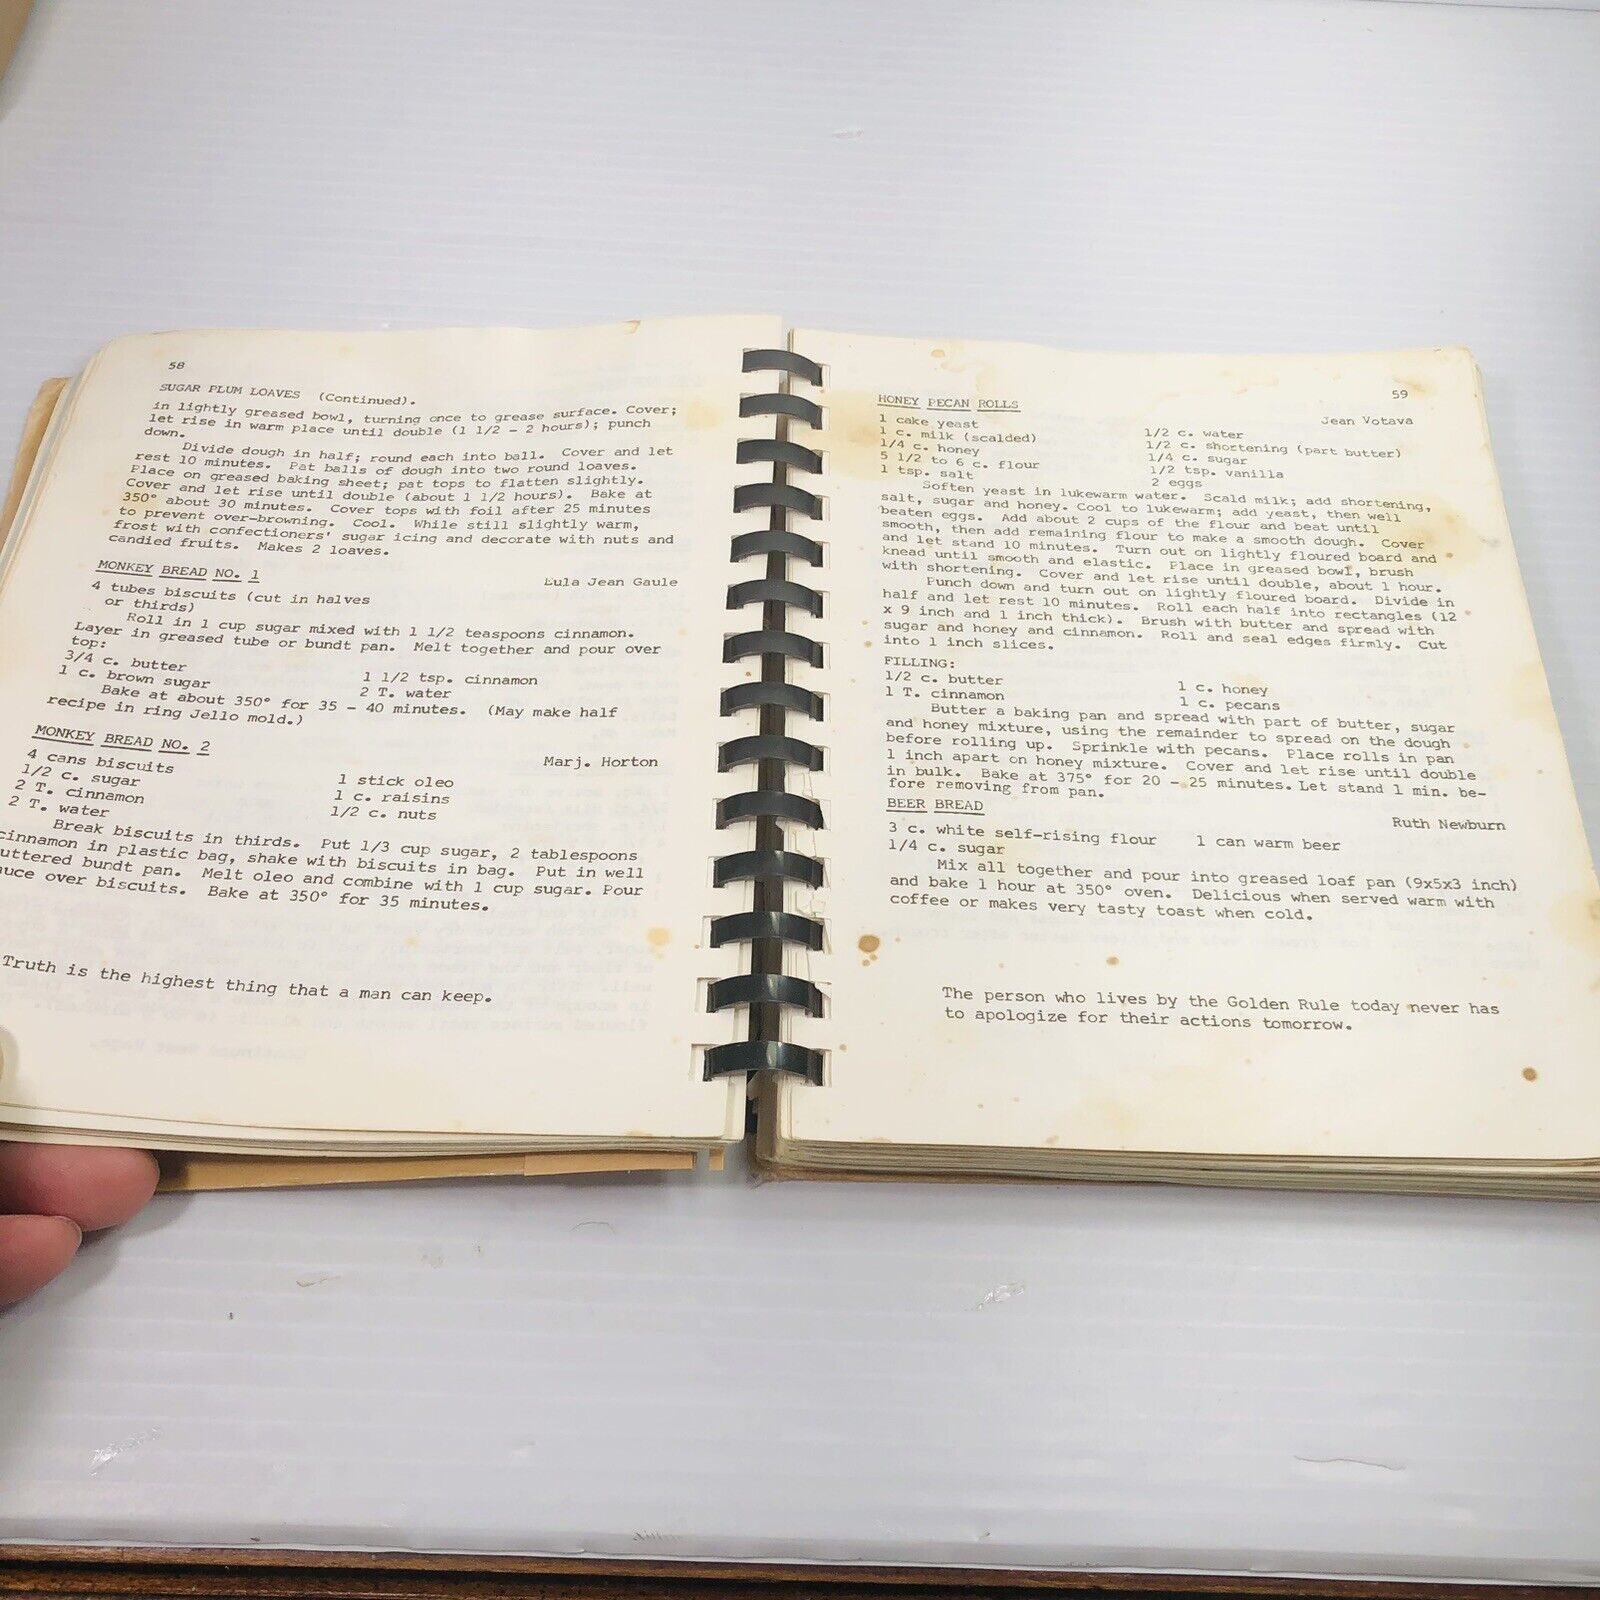 58
SUGAR PLUM LOAVES (Continued).
in lightly greased bowl, turning once to grease surface. Cover;
let rise in warm place until double (1 1/2 - 2 hours); punch
down.
Divide dough in half; round each into ball. Cover and let
rest 10 minutes. Pat balls of dough into two round loaves.
Place on greased baking sheet; pat tops to flatten slightly.
Cover and let rise until double (about 1 1/2 hours). Bake at
350° about 30 minutes. Cover tops with foil after 25 minutes
to prevent over-browning. Cool. While still slightly warm,
frost with confectioners' sugar icing and decorate with nuts and
candied fruits. Makes 2 loaves.
MONKEY BREAD NO. 1
Eula Jean Gaule
4 tubes biscuits (cut in halves
or thirds)
Roll in 1 cup sugar mixed with 1 1/2 teaspoons cinnamon.
Layer in greased tube or bundt pan. Melt together and pour over
top:
3/4 c. butter
1 1/2 tsp. cinnamon
1 c. brown sugar
2 T. water
Bake at about 350° for 35 - 40 minutes. (May make half
recipe in ring Jello mold.)
MONKEY BREAD NO. 2
Marj. Horton
4 cans biscuits
1 stick oleo
1/2 c. sugar
1 c. raisins
2 T. cinnamon
1/2 c. nuts
2 T. water
Break biscuits in thirds. Put 1/3 cup sugar, 2 tablespoons
cinnamon in plastic bag, shake with biscuits in bag. Put in well
uttered bundt pan. Melt oleo and combine with 1 cup sugar. Pour
auce over biscuits. Bake at 350° for 35 minutes.
Truth is the highest thing that a man can keep.
59
HONEY PECAN ROLLS
Jean Votava
1 cake yeast
1/2 c. water
1 c. milk (scalded)
1/2 c. shortening (part butter)
1/4 c. honey
1/4 c. sugar
5 1/2 to 6 c. flour
1/2 tsp. vanilla
1 tsp. salt
2 eggs
Soften yeast in lukewarm water. Scald milk; add shortening,
salt, sugar and honey. Cool to lukewarm; add yeast, then well
beaten eggs. Add about 2 cups of the flour and beat until
smooth, then add remaining flour to make a smooth dough. Cover
and let stand 10 minutes. Turn out on lightly floured board and
knead until smooth and elastic. Place in greased bowl, brush
with shortening. Cover and let rise until double, about 1 hour.
Punch down and turn out on lightly floured board. Divide in
half and let rest 10 minutes. Roll each half into rectangles (12
x 9 inch and 1 inch thick). Brush with butter and spread with
sugar and honey and cinnamon. Roll and seal edges firmly. Cut
into 1 inch slices.
FILLING:
1/2 c. butter
1 c. honey
1 T. cinnamon
1 c. pecans
Butter a baking pan and spread with part of butter, sugar
and honey mixture, using the remainder to spread on the dough
before rolling up. Sprinkle with pecans. Place rolls in pan
1 inch apart on honey mixture. Cover and let rise until double
in bulk. Bake at 375° for 20 - 25 minutes. Let stand 1 min. be-
fore removing from pan.
BEER BREAD
Ruth Newburn
3 c. white self-rising flour
1 can warm beer
1/4 c. sugar
Mix all together and pour into greased loaf pan (9x5x3 inch)
and bake 1 hour at 350° oven. Delicious when served warm with
coffee or makes very tasty toast when cold.
The person who lives by the Golden Rule today never has
to apologize for their actions tomorrow.